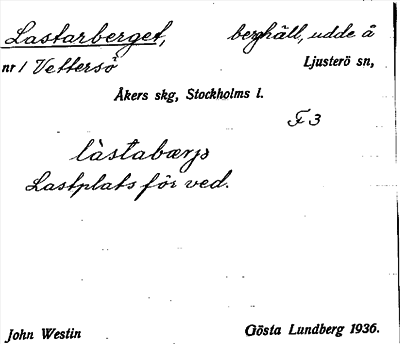 Lastarberget, berghäll, udde å
nr 1 Vettersö Ljusterö sn,
Åkers skg, Stockholms l.
F 3
làstabærjs
Lastplats för ved.
John Westin Gösta Lundberg 1936.